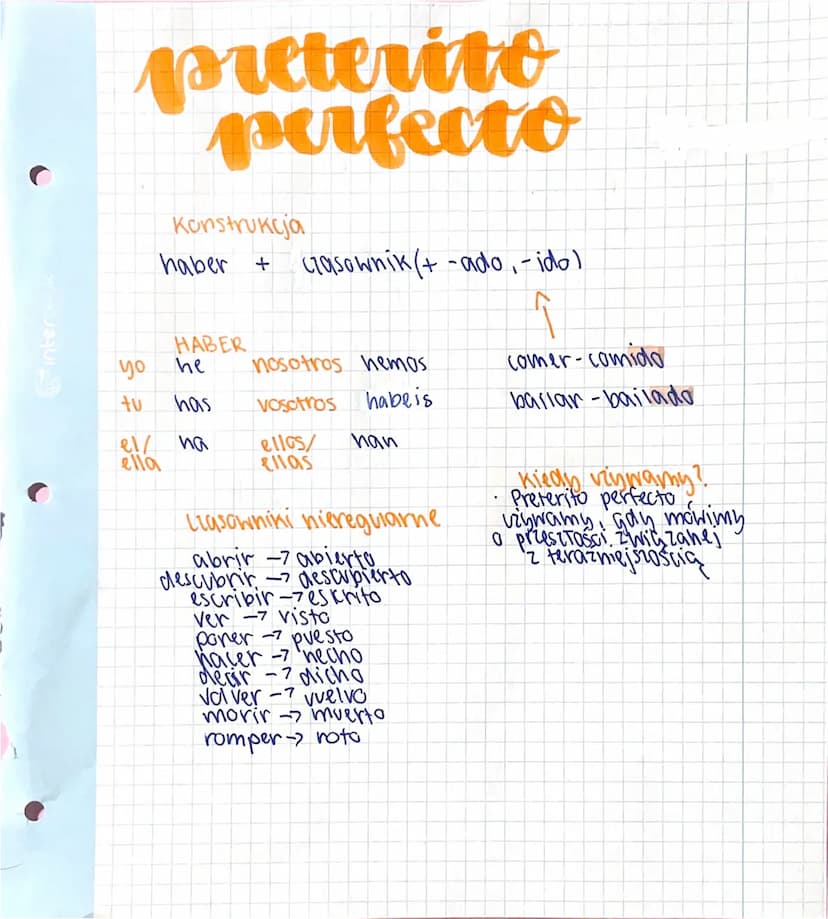 preterito
perfecto
Konstrukcja
haber + czasownik (+ -ado, -ido)
HABER
yo he nosotros hemos
tu has vosotros habeis
el/ ha ellos/ han
ella ellas
comer - comido
bailar - bailado
Kiedy używamy?
· Preterito perfecto
używamy, gdy mówimy
o przeszłości związanej
z teraźniejszością
czasowniki nieregularne
abrir → abierto
descubrir → descubierto
escribir → escrito
ver → visto
poner → puesto
hacer → hecho
decir → dicho
volver → vuelvo
morir → muerto
romper → roto